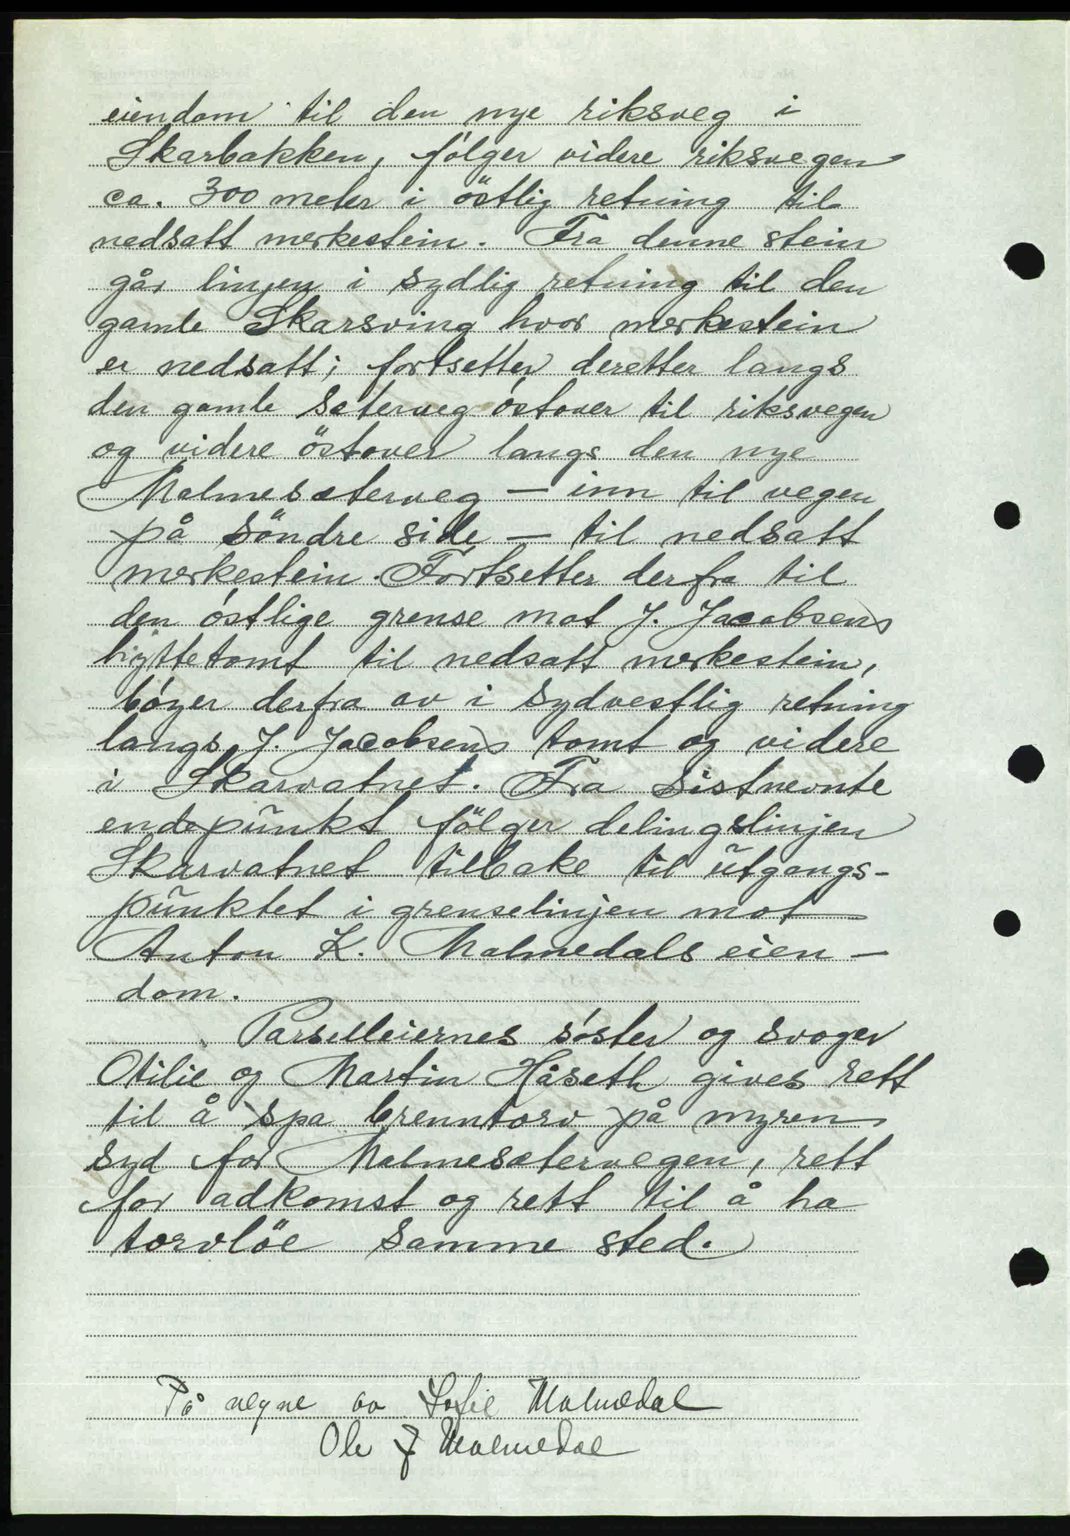 eiendom til den nye riksveg i
Skarbakken, følger videre riksvegen
ca. 300 meter i östlig retning til
nedsatt merkestein. Fra denne stein
går linjen i sydlig retning til den
gamle Skarsving hvor merkestein
er nedsatt; fortsetter deretter langs
den gamle sæterveg østover til riksvegen
og videre östover langs den nye
Malmesæterveg — inn til vegen
på söndre side — til nedsatt
merkestein. Fortsetter derfra til
den østlige grense mot J. Jacobsens
hyttetomt til nedsatt merkestein,
bøyer derfra av i sydvestlig retning
langs J. Jacobsens tomt og videre
i Skarvatnet. Fra sistnevnte
endepunkt fölger delingslinjen
Skarvatnet tilbake til utgangs-
punktet i grenselinjen mot
Anton K. Malmedals eien-
dom.
Parselleiernes søster og svoger
Otilie og Martin Håseth gives rett
til å spa brenntorv på myren
syd for Malmesætervegen, rett
for adkomst og rett til å ha
torvløe samme sted.
På vegne av Sofie Malmedal
Ole J Malmedal